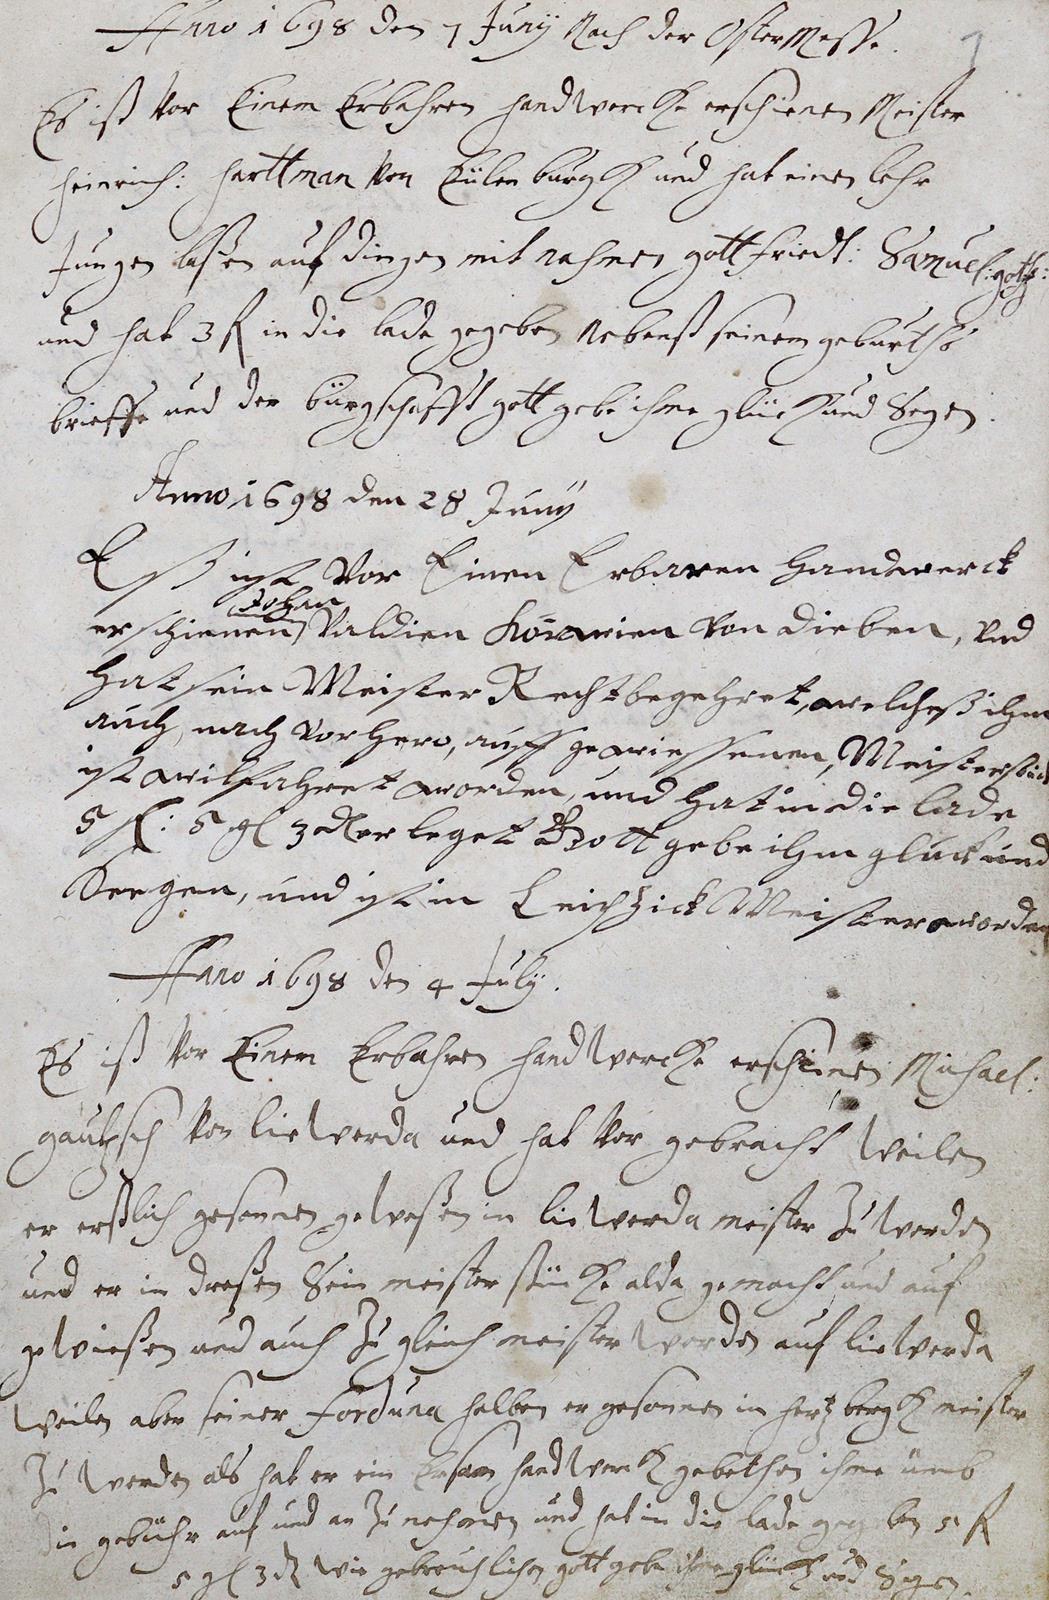 Anno 1698 den 7 Junÿ Nach der OsterMesse.
Es ist Vor Einem Erbahren handwercke erschienen Meister
Heinrich: Harttman Von Eülenburgk und hat einen lehr
Jungen laßen auf dingen mit nahmen gottfriedt: Samuel: 
und hat 3 fl in die lade gegeben Nebenst seinem geburths
brieffe und der bürgschafft gott gebe ihme glück und Segen.
Anno 1698 den 28 Junÿ
Eß ist Vor Einen Erbaren Handwerck
Johan
erschienen Valdien von Dieben, Und
Hat sein Meister Recht begehret, welcheß ihm
auch, nach Vorhero, auff gewiessenen, Meisterstück
ist wilfahret worden, und hat in die lade
5 fl: 5 gl 3 d erleget Gott gebe ihm gluck und
Seegen, und ist in Leipzick Meister worden
Anno 1698 den 4 Julÿ.
Es ist Vor Einem Erbahren handwercke erschienen Michael:
gautzsch Von liewerda und hat Vor gebracht weilen
er erstlich gesonnen geweßen in liewerda meister Zu werden
und er in dreßen Sein meister stücke alda gemacht und auf
gewießen und auch Zu gleich meister worden auf liewerda
weilen aber seiner forduna halben er gesonnen in hertzbergk meister
Zu werden als hat er ein Ersam handwerck gebethen ihme umb
die gebühr auf und an Zu nehmen und hat in die lade gegeben 5 fl
5 gl 3 d wie gebreuchlichen gott gebe ihme glück und Segen.